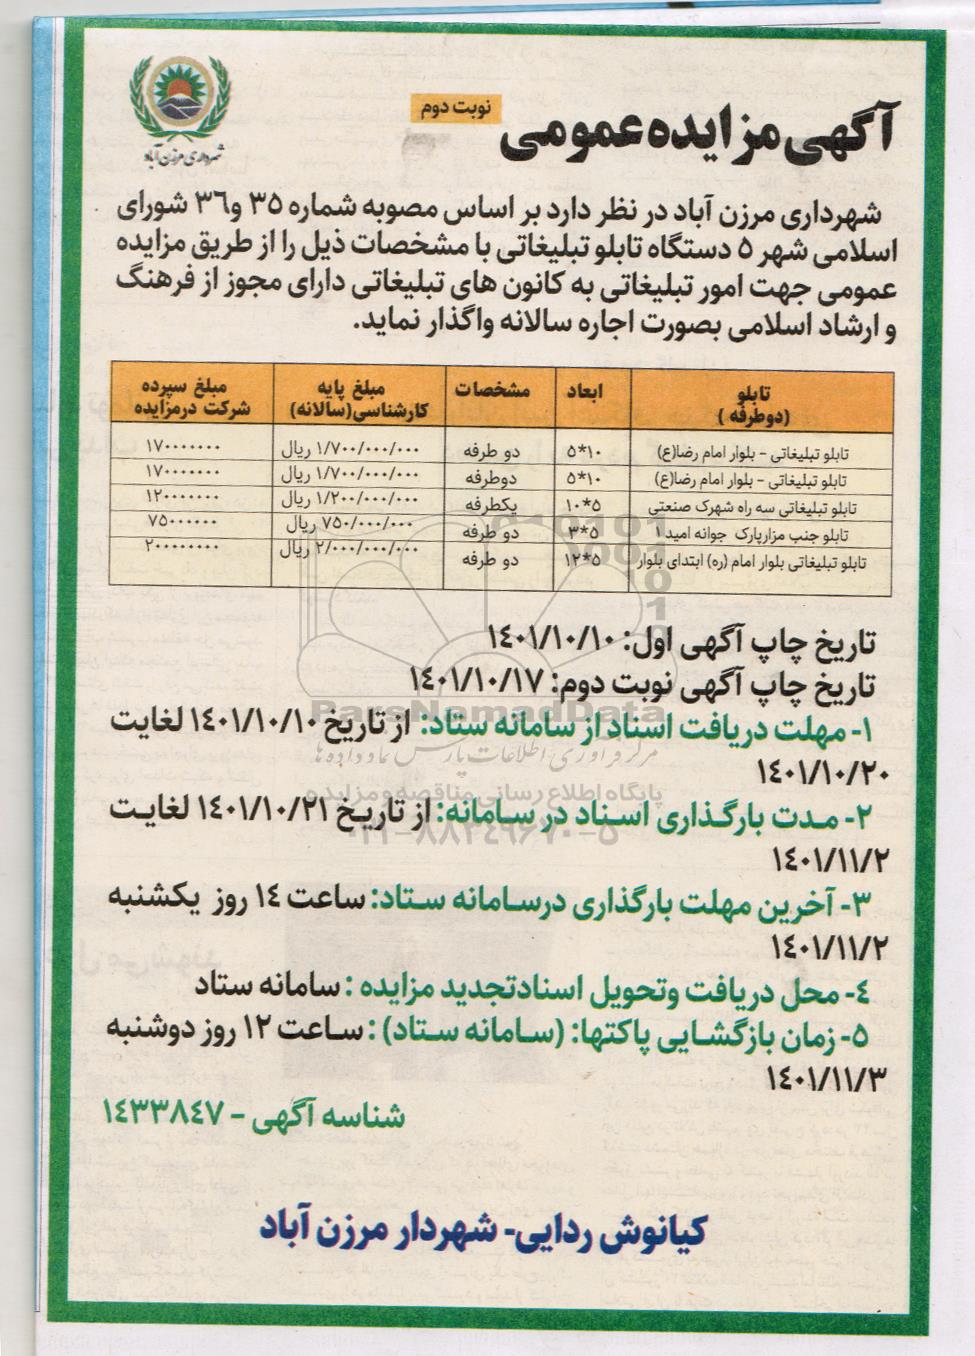 نوبت دوم
آگهی مزایده عمومی
شهرداری مرزن آباد
شهرداری مرزن آباد در نظر دارد بر اساس مصوبه شماره ۳۵ و۳٦ شورای
اسلامی شهر ۵ دستگاه تابلو تبلیغاتی با مشخصات ذیل را از طریق مزایده
عمومی جهت امور تبلیغاتی به کانون های تبلیغاتی دارای مجوز از فرهنگ
و ارشاد اسلامی بصورت اجاره سالانه واگذار نماید.
تابلو (دوطرفه ) ابعاد مشخصات مبلغ پایه کارشناسی(سالانه) مبلغ سپرده شرکت درمزایده
تابلو تبلیغاتی – بلوار امام رضا(ع) ۱۰*۵ دو طرفه ۱/۷۰۰/۰۰۰/۰۰۰ ریال ۱۷۰۰۰۰۰۰۰
تابلو تبلیغاتی – بلوار امام رضا(ع) ۱۰*۵ دوطرفه ۱/۷۰۰/۰۰۰/۰۰۰ ریال ۱۷۰۰۰۰۰۰۰
تابلو تبلیغاتی سه راه شهرک صنعتی ۵*۱۰ یکطرفه ۱/۲۰۰/۰۰۰/۰۰۰ ریال ۱۲۰۰۰۰۰۰۰
تابلو جنب مزارپارک جوانه امید ۱ ۵*۳ دو طرفه ۷۵۰/۰۰۰/۰۰۰ ریال ۷۵۰۰۰۰۰۰
تابلو تبلیغاتی بلوار امام (ره) ابتدای بلوار ۵*۱۲ دو طرفه ۲/۰۰۰/۰۰۰/۰۰۰ ریال ۲۰۰۰۰۰۰۰۰
تاریخ چاپ آگهی اول: ۱٤۰۱/۱۰/۱۰
تاریخ چاپ آگهی نوبت دوم: ۱٤۰۱/۱۰/۱۷
ParsNamadData
۱- مهلت دریافت اسناد از سامانه ستاد: از تاریخ ۱٤۰۱/۱۰/۱۰ لغایت
مرکز فرآوری اطلاعات پارس نماد داده ها
۱٤۰۱/۱۰/۲۰
پایگاه اطلاع رسانی مناقصه و مزایده
۲- مدت بارگذاری اسناد در سامانه: از تاریخ ۱٤۰۱/۱۰/۲۱ لغایت
۰۲۱-۸۸۳٤۹٦۷۰-۵
۱٤۰۱/۱۱/۲
۳- آخرین مهلت بارگذاری درسامانه ستاد: ساعت ۱٤ روز یکشنبه
۱٤۰۱/۱۱/۲
٤- محل دریافت وتحویل اسنادتجدید مزایده : سامانه ستاد
۵- زمان بازگشایی پاکتها: (سامانه ستاد) : ساعت ۱۲ روز دوشنبه
۱٤۰۱/۱۱/۳
شناسه آگهی – ۱٤۳۳۸٤۷
کیانوش ردایی- شهردار مرزن آباد